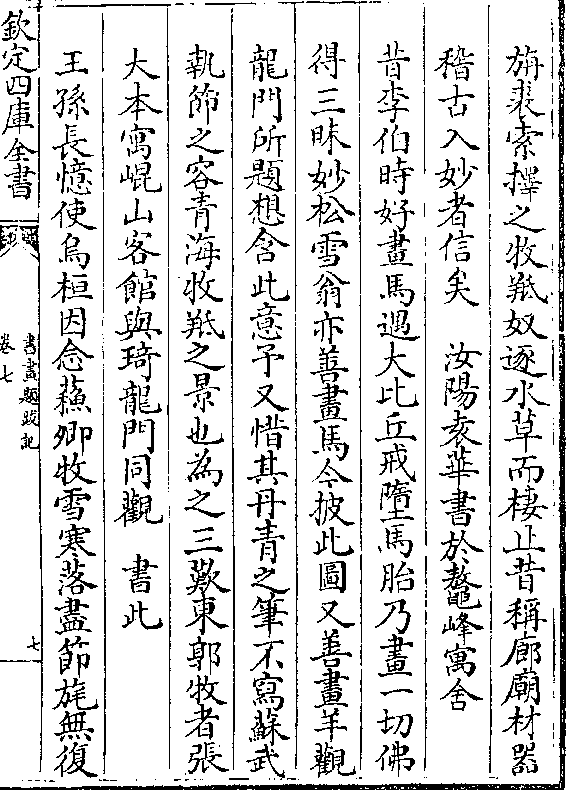 旃裘索擇之牧羝奴逐水草而棲止昔稱廊廟材器
稽古入妙者信矣　汝陽袁華書於鼇峰寓舍
昔李伯時好畫馬遇大比丘戒墮馬胎乃畫一切佛
得三昧妙松雪翁亦善畫馬今披此圖又善畫羊觀
龍門所題想含此意予又惜其丹青之筆不寫蘇武
執節之容青海牧羝之景也為之三歎東郭牧者張
大本寓崐山客館與琦龍門同觀　書此
王孫長憶使烏桓因念蘓卿牧雪寒落盡節旄無復
欽定四庫全書
書畫題跋記
卷七
七